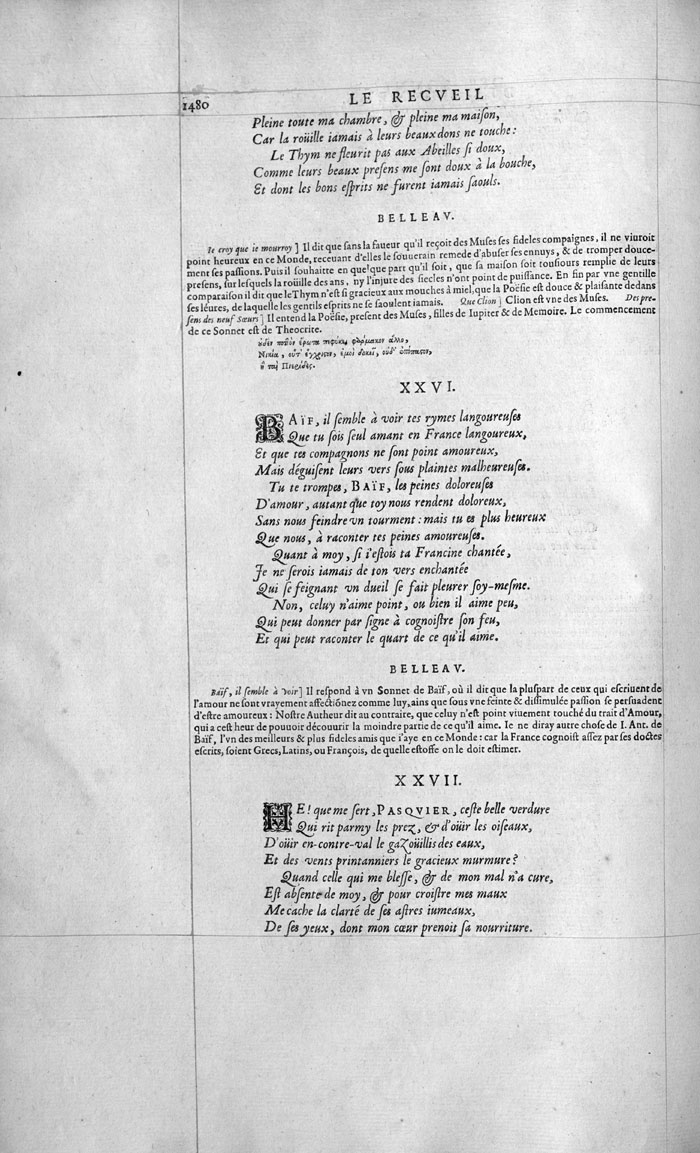 1480
LE RECVEIL
Pleine toute ma chambre, & pleine ma maiſon,
Car la roüille iamais à leurs beaux dons ne touche:
Le Thym ne fleurit pas aux Abeilles ſi doux,
Comme leurs beaux preſens me ſont doux à la bouche,
Et dont les bons eſprits ne furent iamais ſaouls.
BELLEAV.
Ie croy que ie mourroy ] Il dit que ſans la faueur qu'il reçoit des Muſes ſes fideles compaignes, il ne viuroit
point heureux en ce Monde, receuant d'elles le ſouuerain remede d'abuſer ſes ennuys, & de tromper douce-
ment ſes paſſions. Puis il ſouhaitte en quelque part qu'il ſoit, que ſa maiſon ſoit touſiours remplie de leurs
preſens, ſur leſquels la roüille des ans, ny l'iniure des ſiecles n'ont point de puiſſance. En fin par vne gentille
comparaiſon il dit que le Thym n'eſt ſi gracieux aux mouches à miel, que la Poëſie eſt douce & plaiſante dedans
ſes léures, de laquelle les gentils eſprits ne ſe ſaoulent iamais. Que Clion ] Clion eſt vne des Muſes. Des pre-
ſens des neuf Sœurs ] Il entend la Poëſie, preſent des Muſes, filles de Iupiter & de Memoire. Le commencement
de ce Sonnet eſt de Theocrite.
οὐδὲν ποθὸν ἔρωτα πεφύκῃ φάρμακον ἄλλο,
Νικία, οὔτ' ἔγχριστον, ἐμοὶ δοκεῖ, οὐδ' ἐπίπαστον,
ἢ ταὶ Πιερίδες.
XXVI.
BAÏF, il ſemble à voir tes rymes langoureuſes
Que tu ſois ſeul amant en France langoureux,
Et que tes compagnons ne ſont point amoureux,
Mais déguiſent leurs vers ſous plaintes malheureuſes.
Tu te trompes, BAÏF, les peines doloreuſes
D'amour, autant que toy nous rendent doloreux,
Sans nous feindre vn tourment : mais tu es plus heureux
Que nous, à raconter tes peines amoureuſes.
Quant à moy, ſi i'eſtois ta Francine chantée,
Je ne ſerois iamais de ton vers enchantée
Qui ſe feignant vn dueil ſe fait pleurer ſoy-meſme.
Non, celuy n'aime point, ou bien il aime peu,
Qui peut donner par ſigne à cognoiſtre ſon feu,
Et qui peut raconter le quart de ce qu'il aime.
BELLEAV.
Baïf, il ſemble à voir ] Il reſpond à vn Sonnet de Baïf, où il dit que la pluſpart de ceux qui eſcriuent de
l'amour ne ſont vrayement affectiónez comme luy, ains que ſous vne feinte & diſſimulée paſſion ſe perſuadent
d'eſtre amoureux : Noſtre Autheur dit au contraire, que celuy n'eſt point viuement touché du trait d'Amour,
qui a ceſt heur de pouuoir découurir la moindre partie de ce qu'il aime. Ie ne diray autre choſe de I. Ant. de
Baïf, l'vn des meilleurs & plus fideles amis que i'aye en ce Monde : car la France cognoiſt aſſez par ſes doctes
eſcrits, ſoient Grecs, Latins, ou François, de quelle eſtoffe on le doit eſtimer.
XXVII.
HE! que me ſert, PASQVIER, ceſte belle verdure
Qui rit parmy les prez, & d'oüir les oiſeaux,
D'oüir en-contre-val le gazoüillis des eaux,
Et des vents printanniers le gracieux murmure?
Quand celle qui me bleſſe, & de mon mal n'a cure,
Eſt abſente de moy, & pour croiſtre mes maux
Me cache la clarté de ſes aſtres iumeaux,
De ſes yeux, dont mon cœur prenoit ſa nourriture.